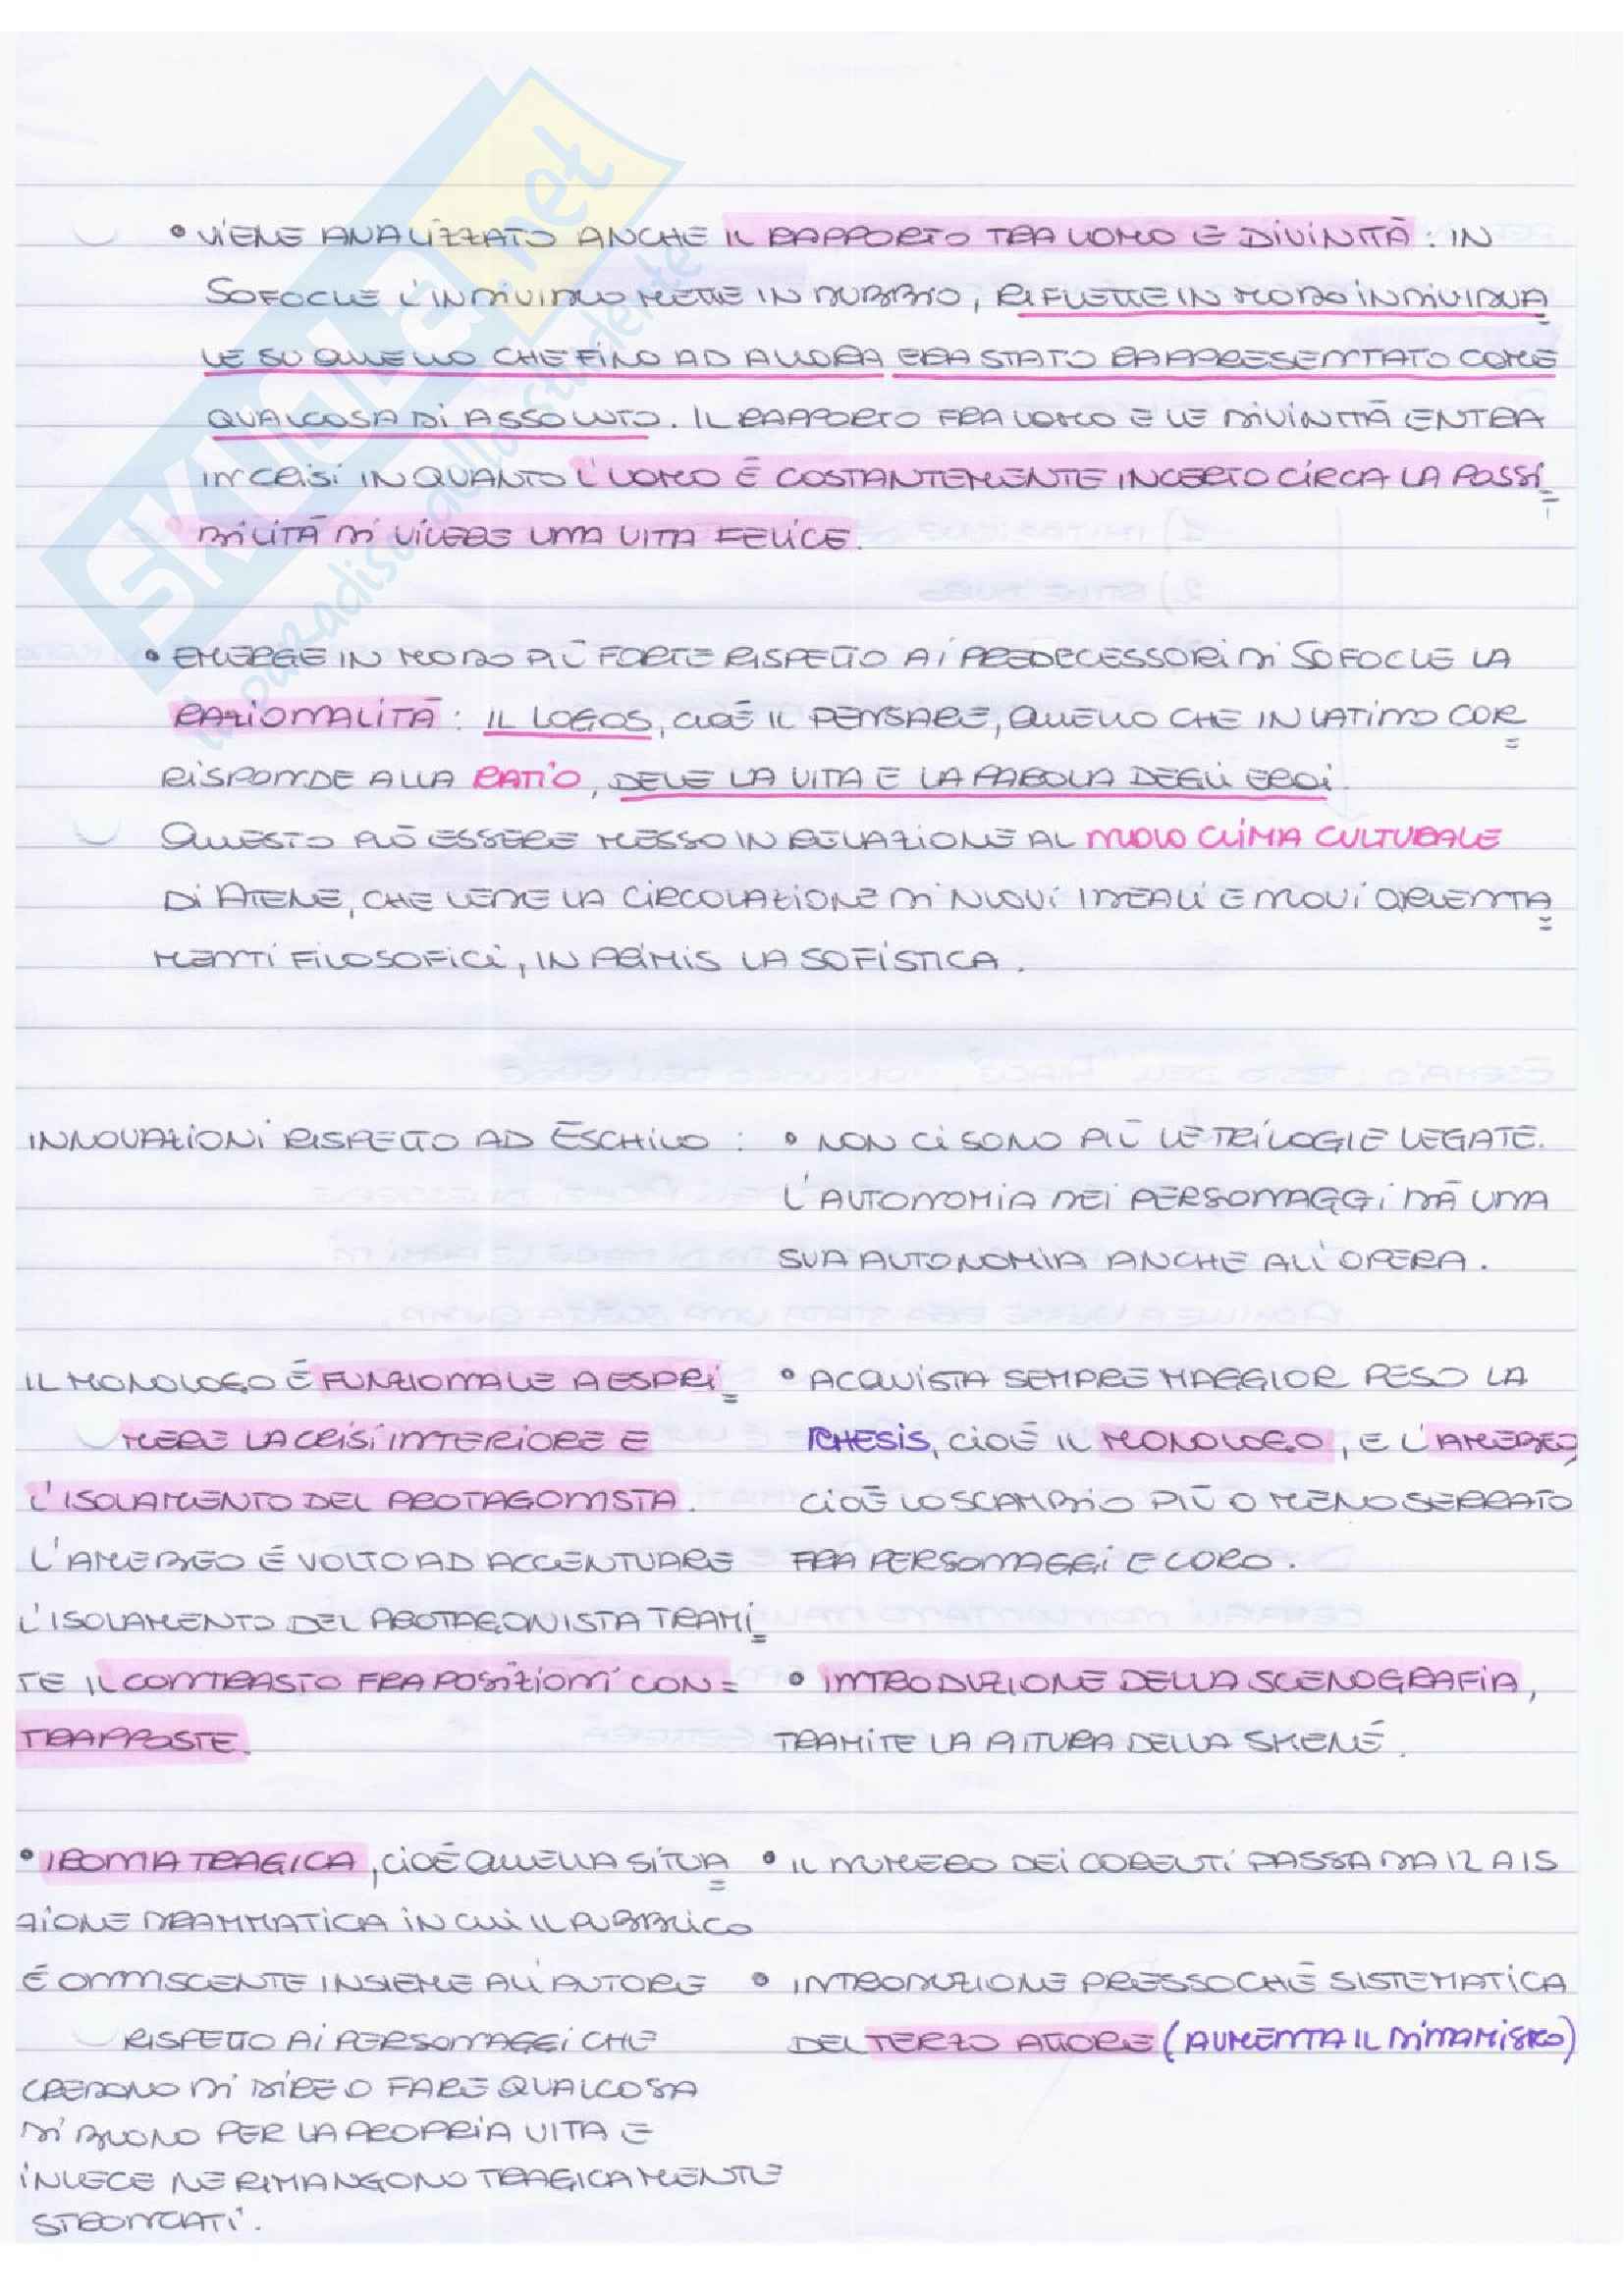 • VIENE ANALIZZATO ANCHE IL RAPPORTO TRA UOMO E DIVINITÀ : IN
SOFOCLE L'INDIVIDUO METTE IN DUBBIO, RIFLETTE IN MODO INDIVIDUA=
LE SU QUELLO CHE FINO AD ALLORA ERA STATO RAPPRESENTATO COME
QUALCOSA DI ASSOLUTO. IL RAPPORTO FRA UOMO E LE DIVINITÀ ENTRA
IN CRISI IN QUANTO L'UOMO È COSTANTEMENTE INCERTO CIRCA LA POSSI=
BILITÀ DI VIVERE UNA VITA FELICE.
• EMERGE IN MODO PIÙ FORTE RISPETTO AI PREDECESSORI DI SOFOCLE LA
RAZIONALITÀ : IL LOGOS, CIOÈ IL PENSARE, QUELLO CHE IN LATINO COR=
RISPONDE ALLA RATIO, DEVE LA VITA E LA PAROLA DEGLI EROI.
QUESTO PUÒ ESSERE MESSO IN RELAZIONE AL NUOVO CLIMA CULTURALE
DI ATENE, CHE VEDE LA CIRCOLAZIONE DI NUOVI IDEALI E NUOVI ORIENTA=
MENTI FILOSOFICI, IN PRIMIS LA SOFISTICA.
INNOVAZIONI RISPETTO AD ESCHILO : • NON CI SONO PIÙ LE TRILOGIE LEGATE.
L'AUTONOMIA DEI PERSONAGGI DÀ UNA
SUA AUTONOMIA ANCHE ALL'OPERA.
IL MONOLOGO È FUNZIONALE A ESPRI=
MERE LA CRISI INTERIORE E
L'ISOLAMENTO DEL PROTAGONISTA.
L'AMEBEO È VOLTO AD ACCENTUARE
L'ISOLAMENTO DEL PROTAGONISTA TRAMI=
TE IL CONTRASTO FRA POSIZIONI CON=
TRAPPOSTE.
• IRONIA TRAGICA, CIOÈ QUELLA SITUA=
ZIONE DRAMMATICA IN CUI IL PUBBLICO
È ONNISCENTE INSIEME ALL'AUTORE
RISPETTO AI PERSONAGGI CHE
CREDONO DI DIRE O FARE QUALCOSA
DI BUONO PER LA PROPRIA VITA E
INVECE NE RIMANGONO TRAGICAMENTE
STRONCATI.
• ACQUISTA SEMPRE MAGGIOR PESO LA
RHESIS, CIOÈ IL MONOLOGO, E L'AMEBEO,
CIOÈ LO SCAMBIO PIÙ O MENO SERRATO
FRA PERSONAGGI E CORO.
• INTRODUZIONE DELLA SCENOGRAFIA,
TRAMITE LA PITTURA DELLA SKENÉ.
• IL NUMERO DEI COREUTI PASSA DA 12 A 15
• INTRODUZIONE PRESSOCHÈ SISTEMATICA
DEL TERZO ATTORE (AUMENTA IL DINAMISMO)
SKUOLA.net
il paradiso dello studente